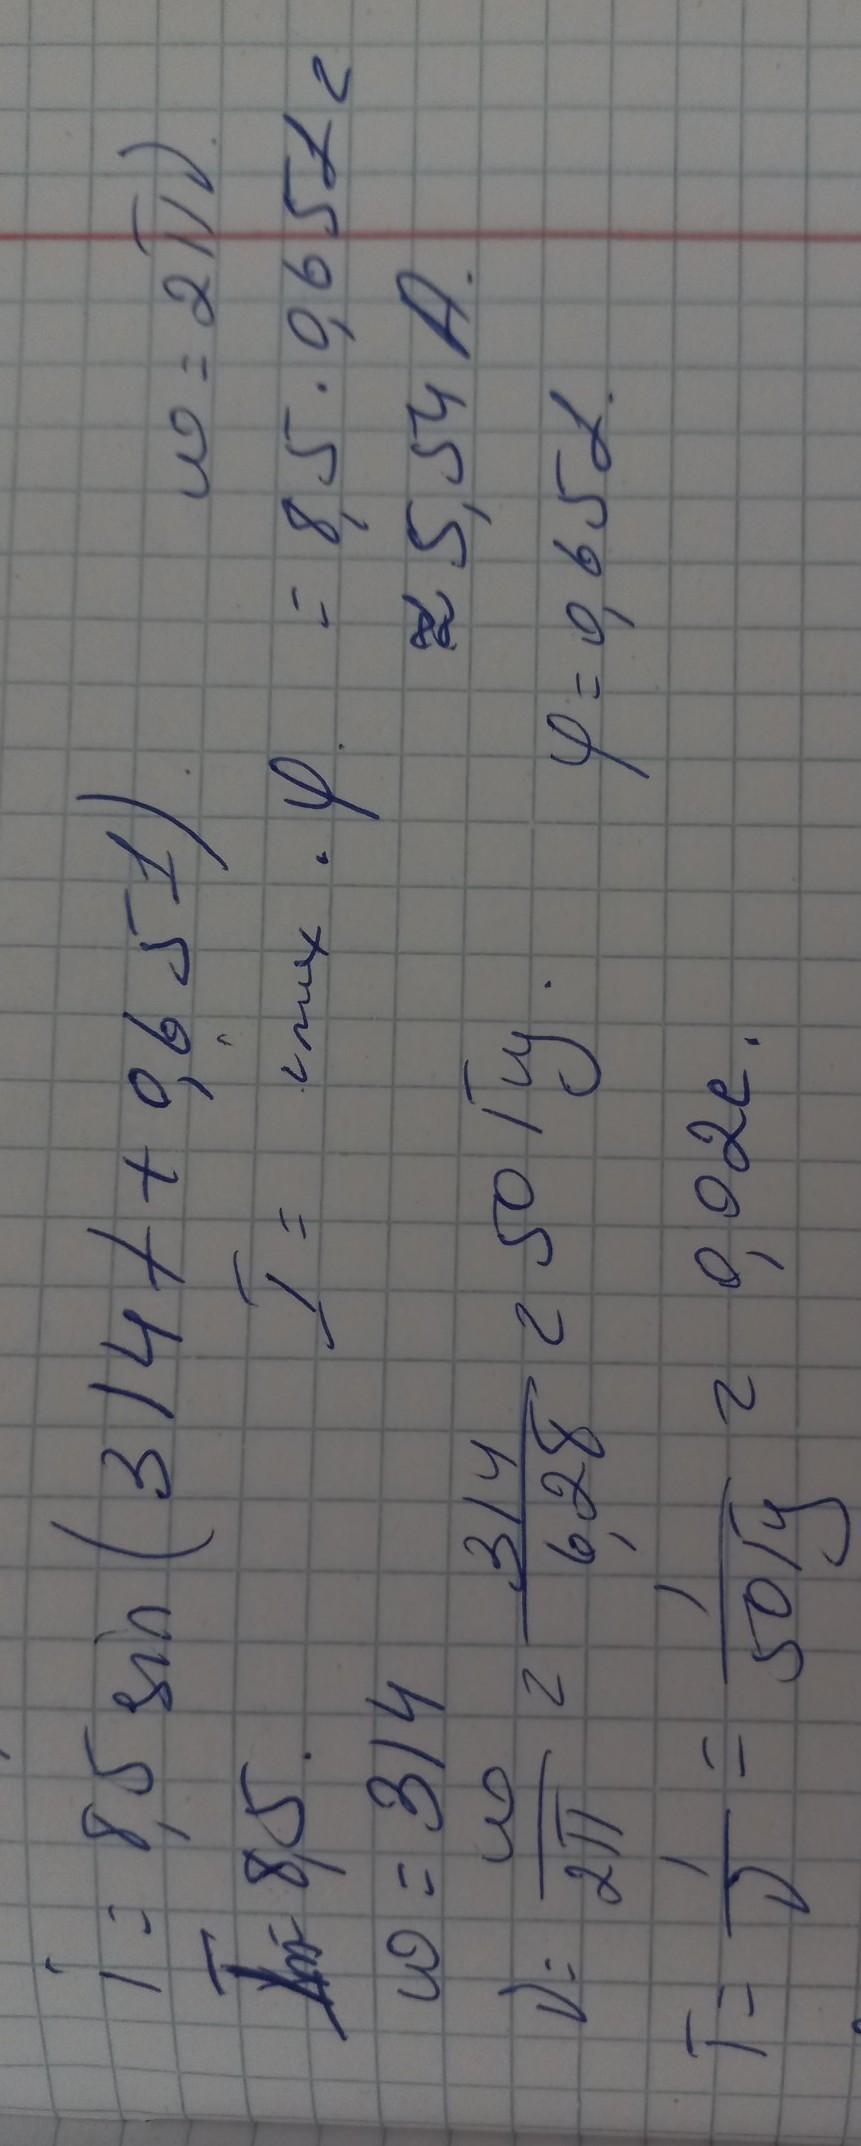 i = 8,5 sin (314t + 0,651)
ω = 2πν
Im = 8,5.
I = imax · φ. = 8,5 · 0,651 =
≈ 5,54 A.
ω = 314
ν = ω/2π = 314/6,28 = 50 Гц.
φ = 0,651.
T = 1/ν = 1/50Гц = 0,02с.